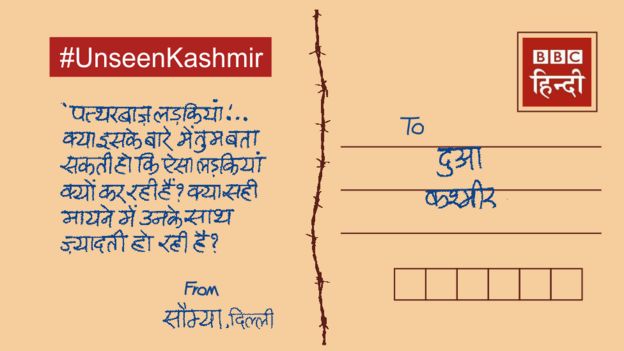 #UnseenKashmir
'पत्थरबाज़ लड़कियां'..
क्या इसके बारे में तुम बता
सकती हो कि ऐसा लड़कियां
क्यों कर रही हैं? क्या सही
मायने में उनके साथ
ज़्यादती हो रही है?
From
सौम्या, दिल्ली
BBC
हिन्दी
To
दुआ
कश्मीर